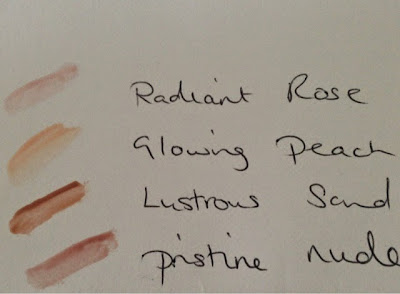 Radiant Rose
Glowing Peach
Lustrous Sand
pristine nude